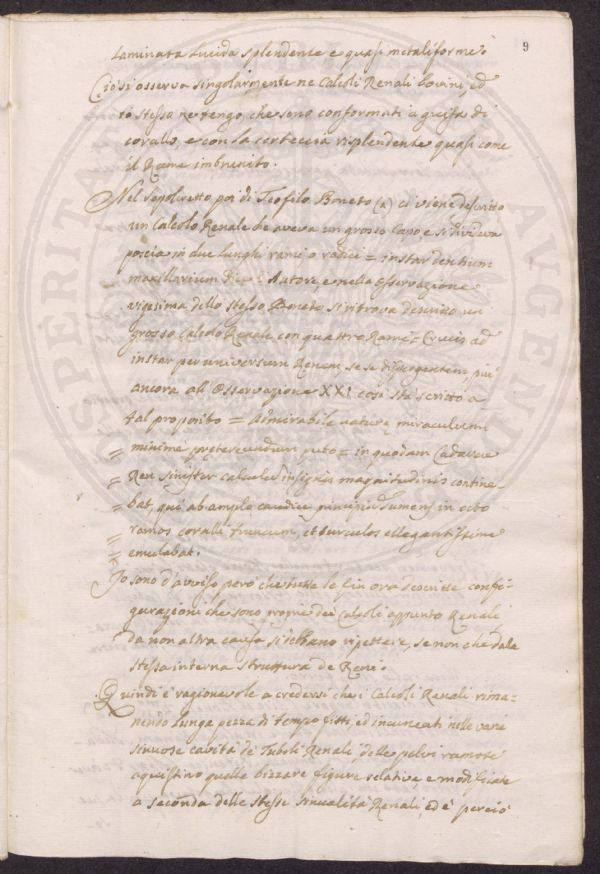 9
Laminata lucida splendente e quasi metaliforme
Ciò si osserva singolarmente ne Calcoli Renali bovini, ed
io stesso ne tengo, che sono conformati a guisa di
corallo, e con la corteccia risplendente quasi come
il Rame imbrunito.
Nel sepolcretto poi di Teofilo Boneto (a) ci viene descritto
un Calcolo Renale che aveva un grosso Capo e si divideva
poscia in due lunghi rami o radici = instar dentium
maxillarium Autore e nella Osservazione
vigesima dello stesso Boneto si ritrova descritto un
grosso Calcolo Renale con quattro Rami = Crucis ad
instar per universum Renem se se più
ancora all' Osservazione XXI così sta scritto a
tal proposito = Admirabile naturæ miraculum
= minime prætereundum puto = in quodam Cadavere
= Ren sinister calculum insignis magnitudinis contine-
= bat, qui ab amplo caudice principium sumens in octo
= ramos coralli truncum, et surculos ellegantissime
= emulabat.
Io sono d'avviso però che tutte le fin ora descritte confi-
gurazioni che sono proprie dei Calcoli appunto Renali
da non altra causa si debbano ripettere, se non che dala
stessa interna struttura de Reni.
Quindi è ragionevole a credersi che i Calcoli Renali rima-
nendo lunga pezza di tempo fitti, ed incuneati nelle varie
sinuose cavità de Tuboli Renali, delle pelvi ramose
aquistino quelle bizzare figure relative, e modificate
a seconda delle stesse sinualità Renali, ed è perciò